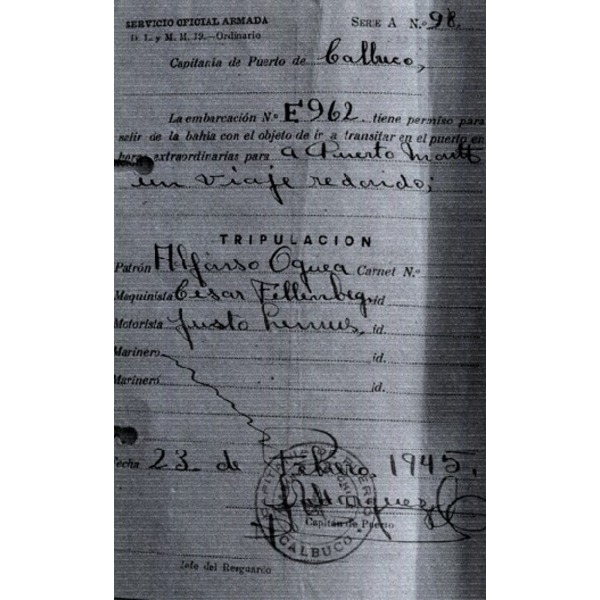 SERVICIO OFICIAL ARMADA
SERIE A N.º 98.
D. L. y M. M. 19.—Ordinario
Capitanía de Puerto de Calbuco,
La embarcación N.º E962. tiene permiso para
salir de la bahía con el objeto de ir a transitar en el puerto en
horas extraordinarias para a Puerto Montt
un viaje redondo;
TRIPULACION
Patrón Alfonso Oguea Carnet N.º
Maquinista César Fellenbeg, id.
Motorista Justo Lemus, id.
Marinero id.
Marinero id.
Fecha 23 de Febrero 1945.
Capitán de Puerto
CALBUCO
Jefe del Resguardo